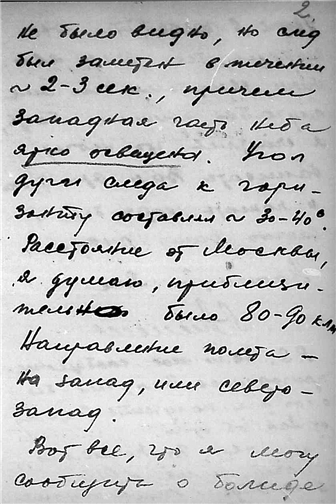 2.
не было видно, но след
был заметен в течении
~ 2-3 сек., причем
западная часть неба
ярко освещена. Угол
дуги следа к гори-
зонту составлял ~ 30-40°.
Расстояние от Москвы,
я думаю, приблизи-
тельно было 80-90 клм
Направление полета –
на запад, или северо-
запад.
Вот все, что я могу
сообщить о болиде